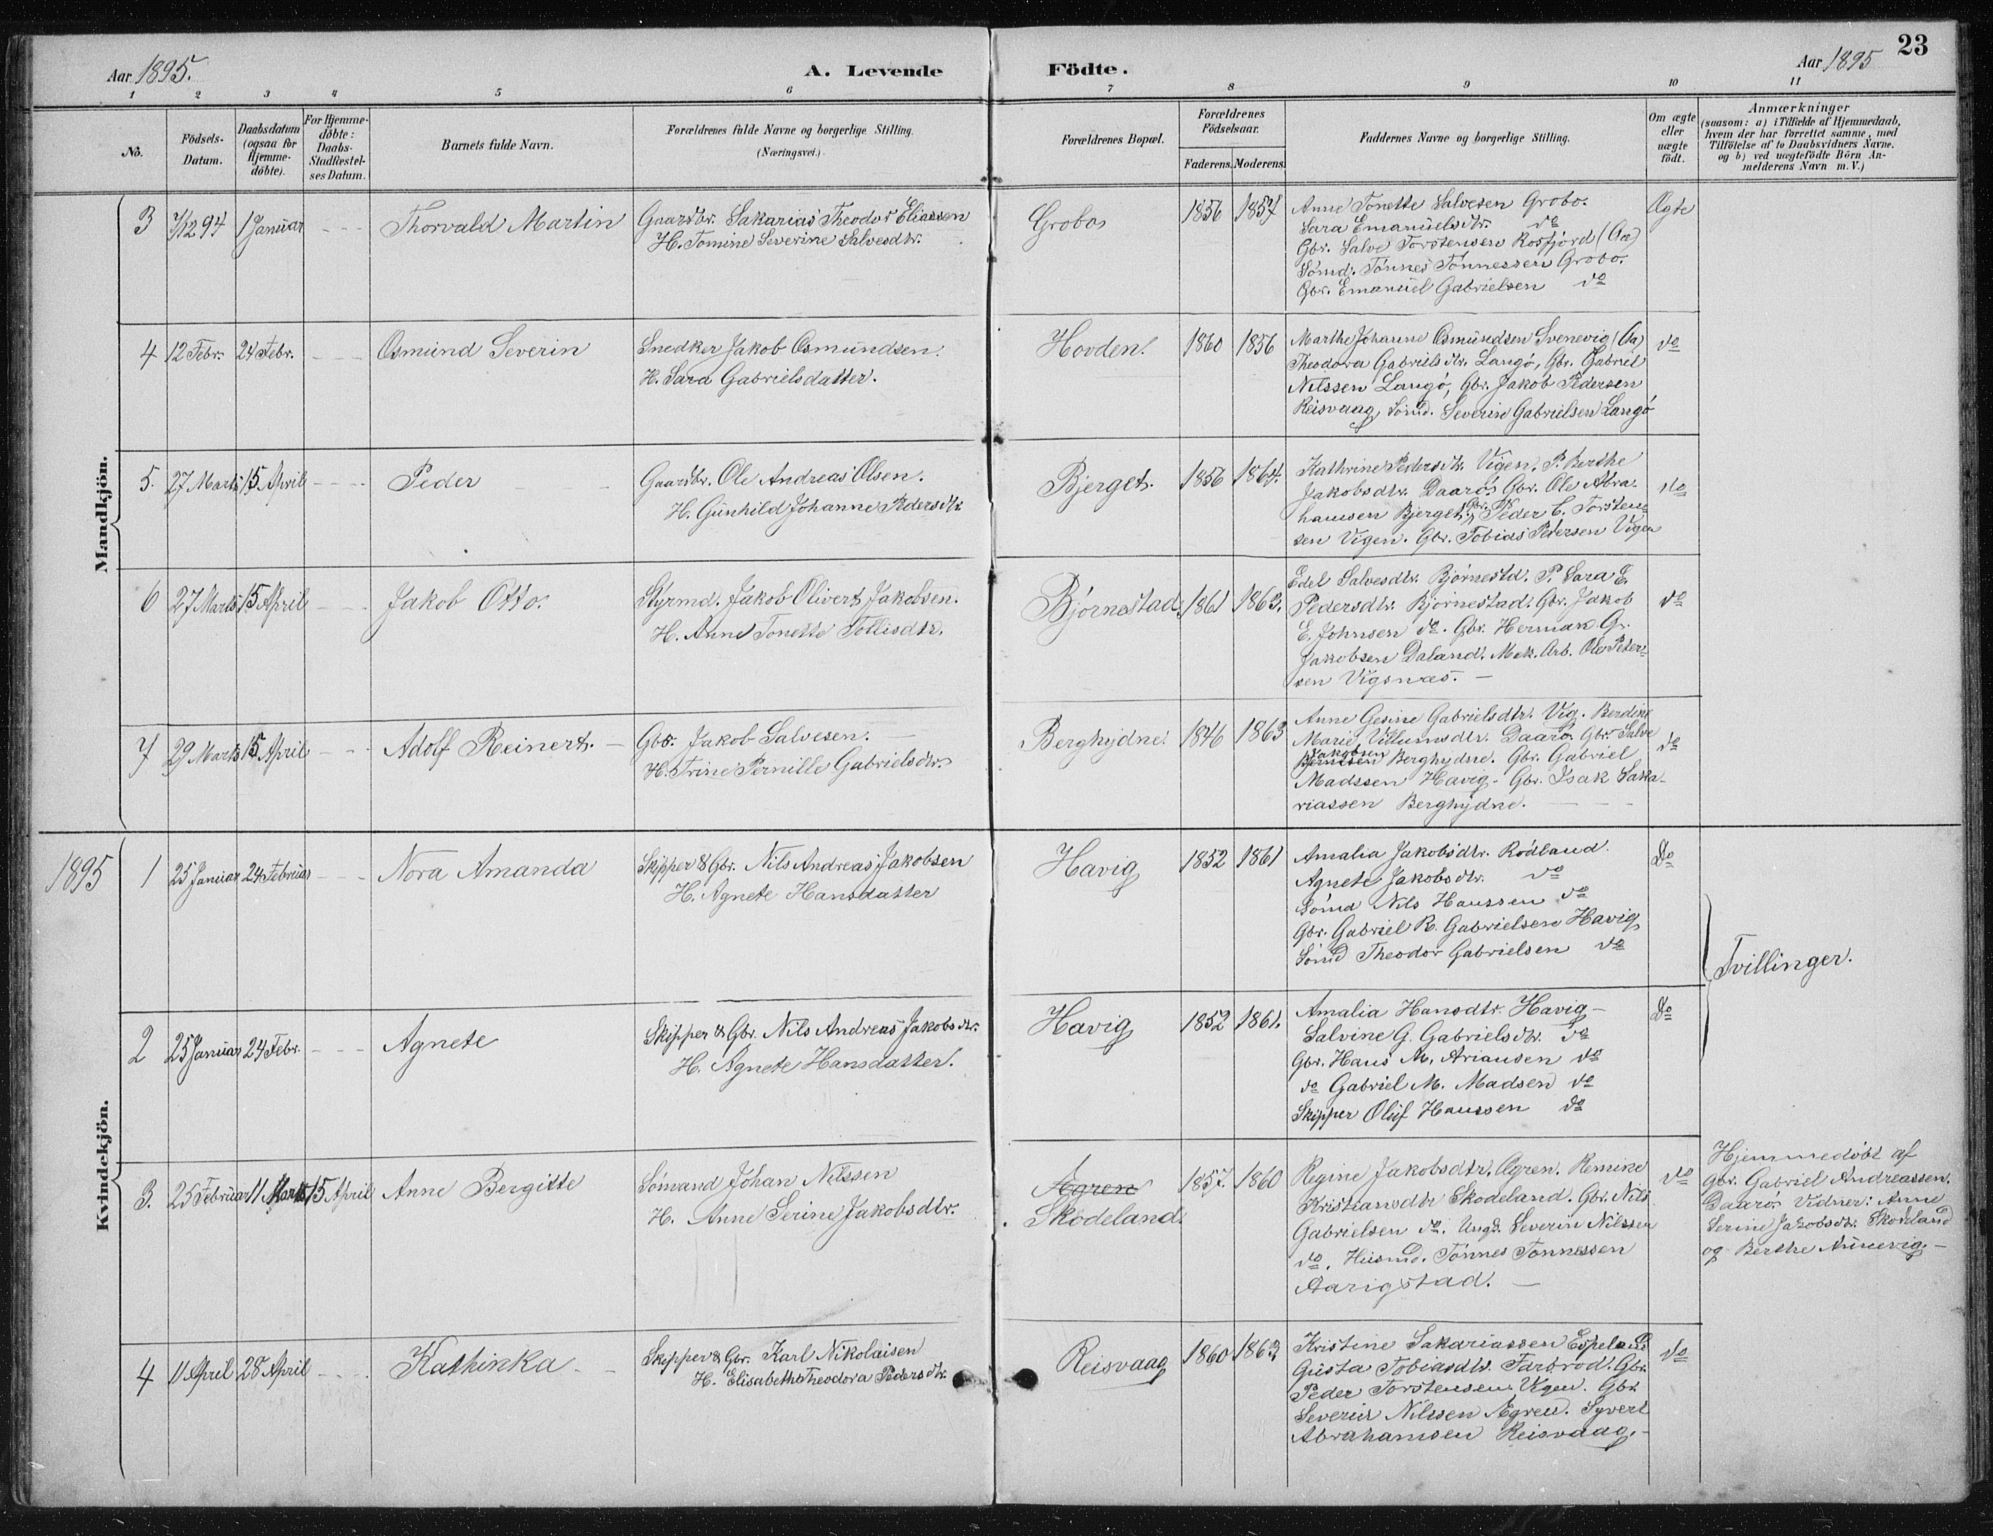 23
Aar 1895.
A. Levende
Födte.
Aar 1895
1 2 3 4 5 6 7 8 9 10 11
No.
Födsels-
Datum.
Daabsdatum
(ogsaa for
Hjemme-
döbte).
For Hjemme-
döbte:
Daabs-
Stadfæstel-
ses Datum.
Barnets fulde Navn.
Forældrenes fulde Navne og borgerlige Stilling.
(Næringsvei.)
Forældrenes Bopæl.
Forældrenes
Födselsaar.
Faderens. Moderens.
Faddernes Navne og borgerlige Stilling.
Om ægte
eller
uægte
födt.
Anmærkninger
(saasom: a) i Tilfælde af Hjemmedaab,
hvem der har forrettet samme, med
Tilföielse af to Daabsvidners Navne.
og b) ved uægtefödte Börn An-
melderens Navn m. V.)
Mandkjön.
3 7/12 94 1 Januar Thorvald Martin
Gaardbr. Sakarias Theodor Eliassen
H. Tomine Severine Salvesdtr.
Grobos 1856 1857
Anne Tonette Salvesen Grobo.
Sara Emanuelsdtr. do
Gbr. Salve Torstensen Rosfjord (Aa)
Sömd. Tönnes Tönnessen Grobo.
Gbr. Emanuel Gabrielsen do
Ægte
4 12 Febr. 24 Febr. Osmund Severin
Snedker Jakob Osmundsen.
H. Sara Gabrielsdatter.
Hovden. 1860 1856
Marthe Johanne Osmundsen Svenevig (Aa)
Theodora Gabrielsdtr. Langö, Gbr. Gabriel
Nilssen Langö, Gbr. Jakob Pedersen
Reisvaag, Sömd. Severin Gabrielsen Langö
do
5. 27 Marts 15 April Peder
Gaardbr. Ole Andreas Olsen.
H. Gunhild Johanne Pedersdtr.
Bjerget. 1856 1864.
Kathrine Pedersdtr. Vigen. P. Berthe
Jakobsdtr. Daarö. Gbr. Ole Abra-
hamsen Bjerget. Gbr. Peder C. Torsten-
sen Vigen. Gbr. Tobias Petersen Vigen
do
6 27 Marts 15 April Jakob Otto.
Styrmd. Jakob Olivert Jakobsen.
H. Anne Tonette Tollisdtr.
Björnestad. 1861 1863.
Edel Salvesdtr. Björnestd. P. Sara E.
Pedersdtr. Björnestad. Gbr. Jakob
E. Johnsen do. Gbr. Herman Gr.
Jakobsen Daland. Mek. Arb. Ole Peter-
sen Vigsnæs. —
do
7 29 Marts 15 April Adolf Reinert. —
Gbr. Jakob Salvesen. —
H. Trine Pernille Gabrielsdtr.
Berghydne. 1846 1863
Anne Gesine Gabrielsdtr. Vig. Berdine
Marie Villumsdtr. Daarö. Gbr. Salve
Jakobsen
Berghydne. Gbr. Gabriel
Madssen Havig. Gbr. Isak Saka-
riassen Berghydne.
do
Kvindekjön.
1895 1 25 Januar 24 Februar Nora Amanda
Skipper & Gbr. Nils Andreas Jakobsen
H. Agnete Hansdatter
Havig 1852 1861
Amalia Jakobsdtr. Rödland.
Agnete Jakobsdtr. do
Sömd Nils Hanssen do
Gbr. Gabriel R. Gabrielsen Havig
Sömd Theodor Gabrielsen do
Do
Tvillinger.
2 25 Januar 24 Febr. Agnete
Skipper & Gbr. Nils Andreas Jakobsdtr.
H. Agnete Hansdatter.
Havig 1852 1861.
Amalia Hansdtr. Havig —
Salvine G. Gabrielsdtr. do
Gbr. Hans M. Ariansen do
do Gabriel M. Madsen do
Skipper Oluf Hanssen do
Do
3. 25 Februar 11 Marts 15 April Anne Bergitte
Sömand Johan Nilssen
H. Anne Serine Jakobsdtr.
Ægren
Skodeland. 1857. 1860
Regine Jakobsdtr. Ægren. Remine
Kristiansdtr Skodeland. Gbr. Nils
Gabrielsen do. Ungk. Severin Nilssen
do. Husmd. Tönnes Tönnessen
Aarigstad. —
do
Hjemmedöbt af
Gbr. Gabriel Andreassen.
Daarö. Vidner: Anne
Serine Jakobsdtr. Skodeland
og Berthe Nunevig. —
4 11 April 28 April Kathinka —
Skipper & Gbr. Karl Nikolaisen
H. Elisabeth Theodora Pedersdtr.
Reisvaag 1860 1863
Kristine Sakariassen Espeland
Gusta Tobiasdtr. Farbrod. Gbr.
Peder Torstensen Vigen. Gbr.
Severin Nilssen Ægren. Syvert
Abrahamsen Reisvaag. —
do